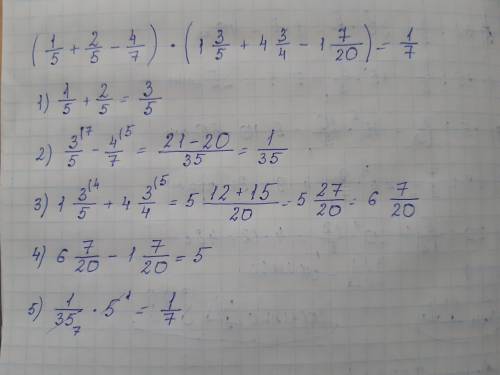 (1/5 + 2/5 - 4/7) • (1 3/5 + 4 3/4 - 1 7/20) = 1/7
1) 1/5 + 2/5 = 3/5
2) 3/5 (7 - 4/7 (5 = 21-20/35 = 1/35
3) 1 3/5 (4 + 4 3/4 (5 = 5 12+15/20 = 5 27/20 = 6 7/20
4) 6 7/20 - 1 7/20 = 5
5) 1/35 7 • 5 1 = 1/7